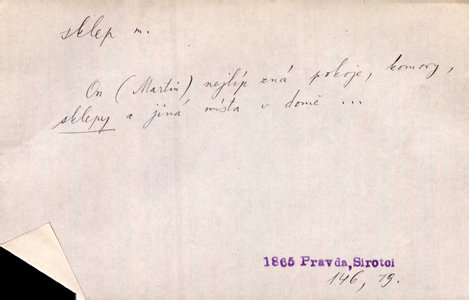 sklep m.
On (Martin) nejlíp zná pokoje, komory,
sklepy a jiná místa v domě ...
1865 Pravda, Sirotci
146, 79.